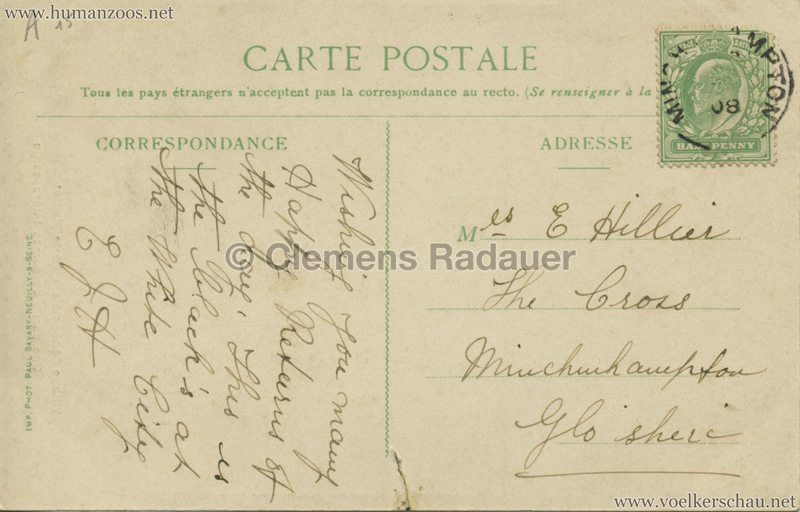 www.humanzoos.net
A 15
CARTE POSTALE
Tous les pays étrangers n'acceptent pas la correspondance au recto. (Se renseigner à la
CORRESPONDANCE
ADRESSE
HALF PENNY
08
Wishing you many
Happy Returns of
the day. This is
the black's at
the White City
E J H
Mles E Hillier
The Cross
Minchinhampton
Glo'shere
IMP. PHOT PAUL SAVARY-NEUILLY-S-SEINE
© Clemens Radauer
www.voelkerschau.net